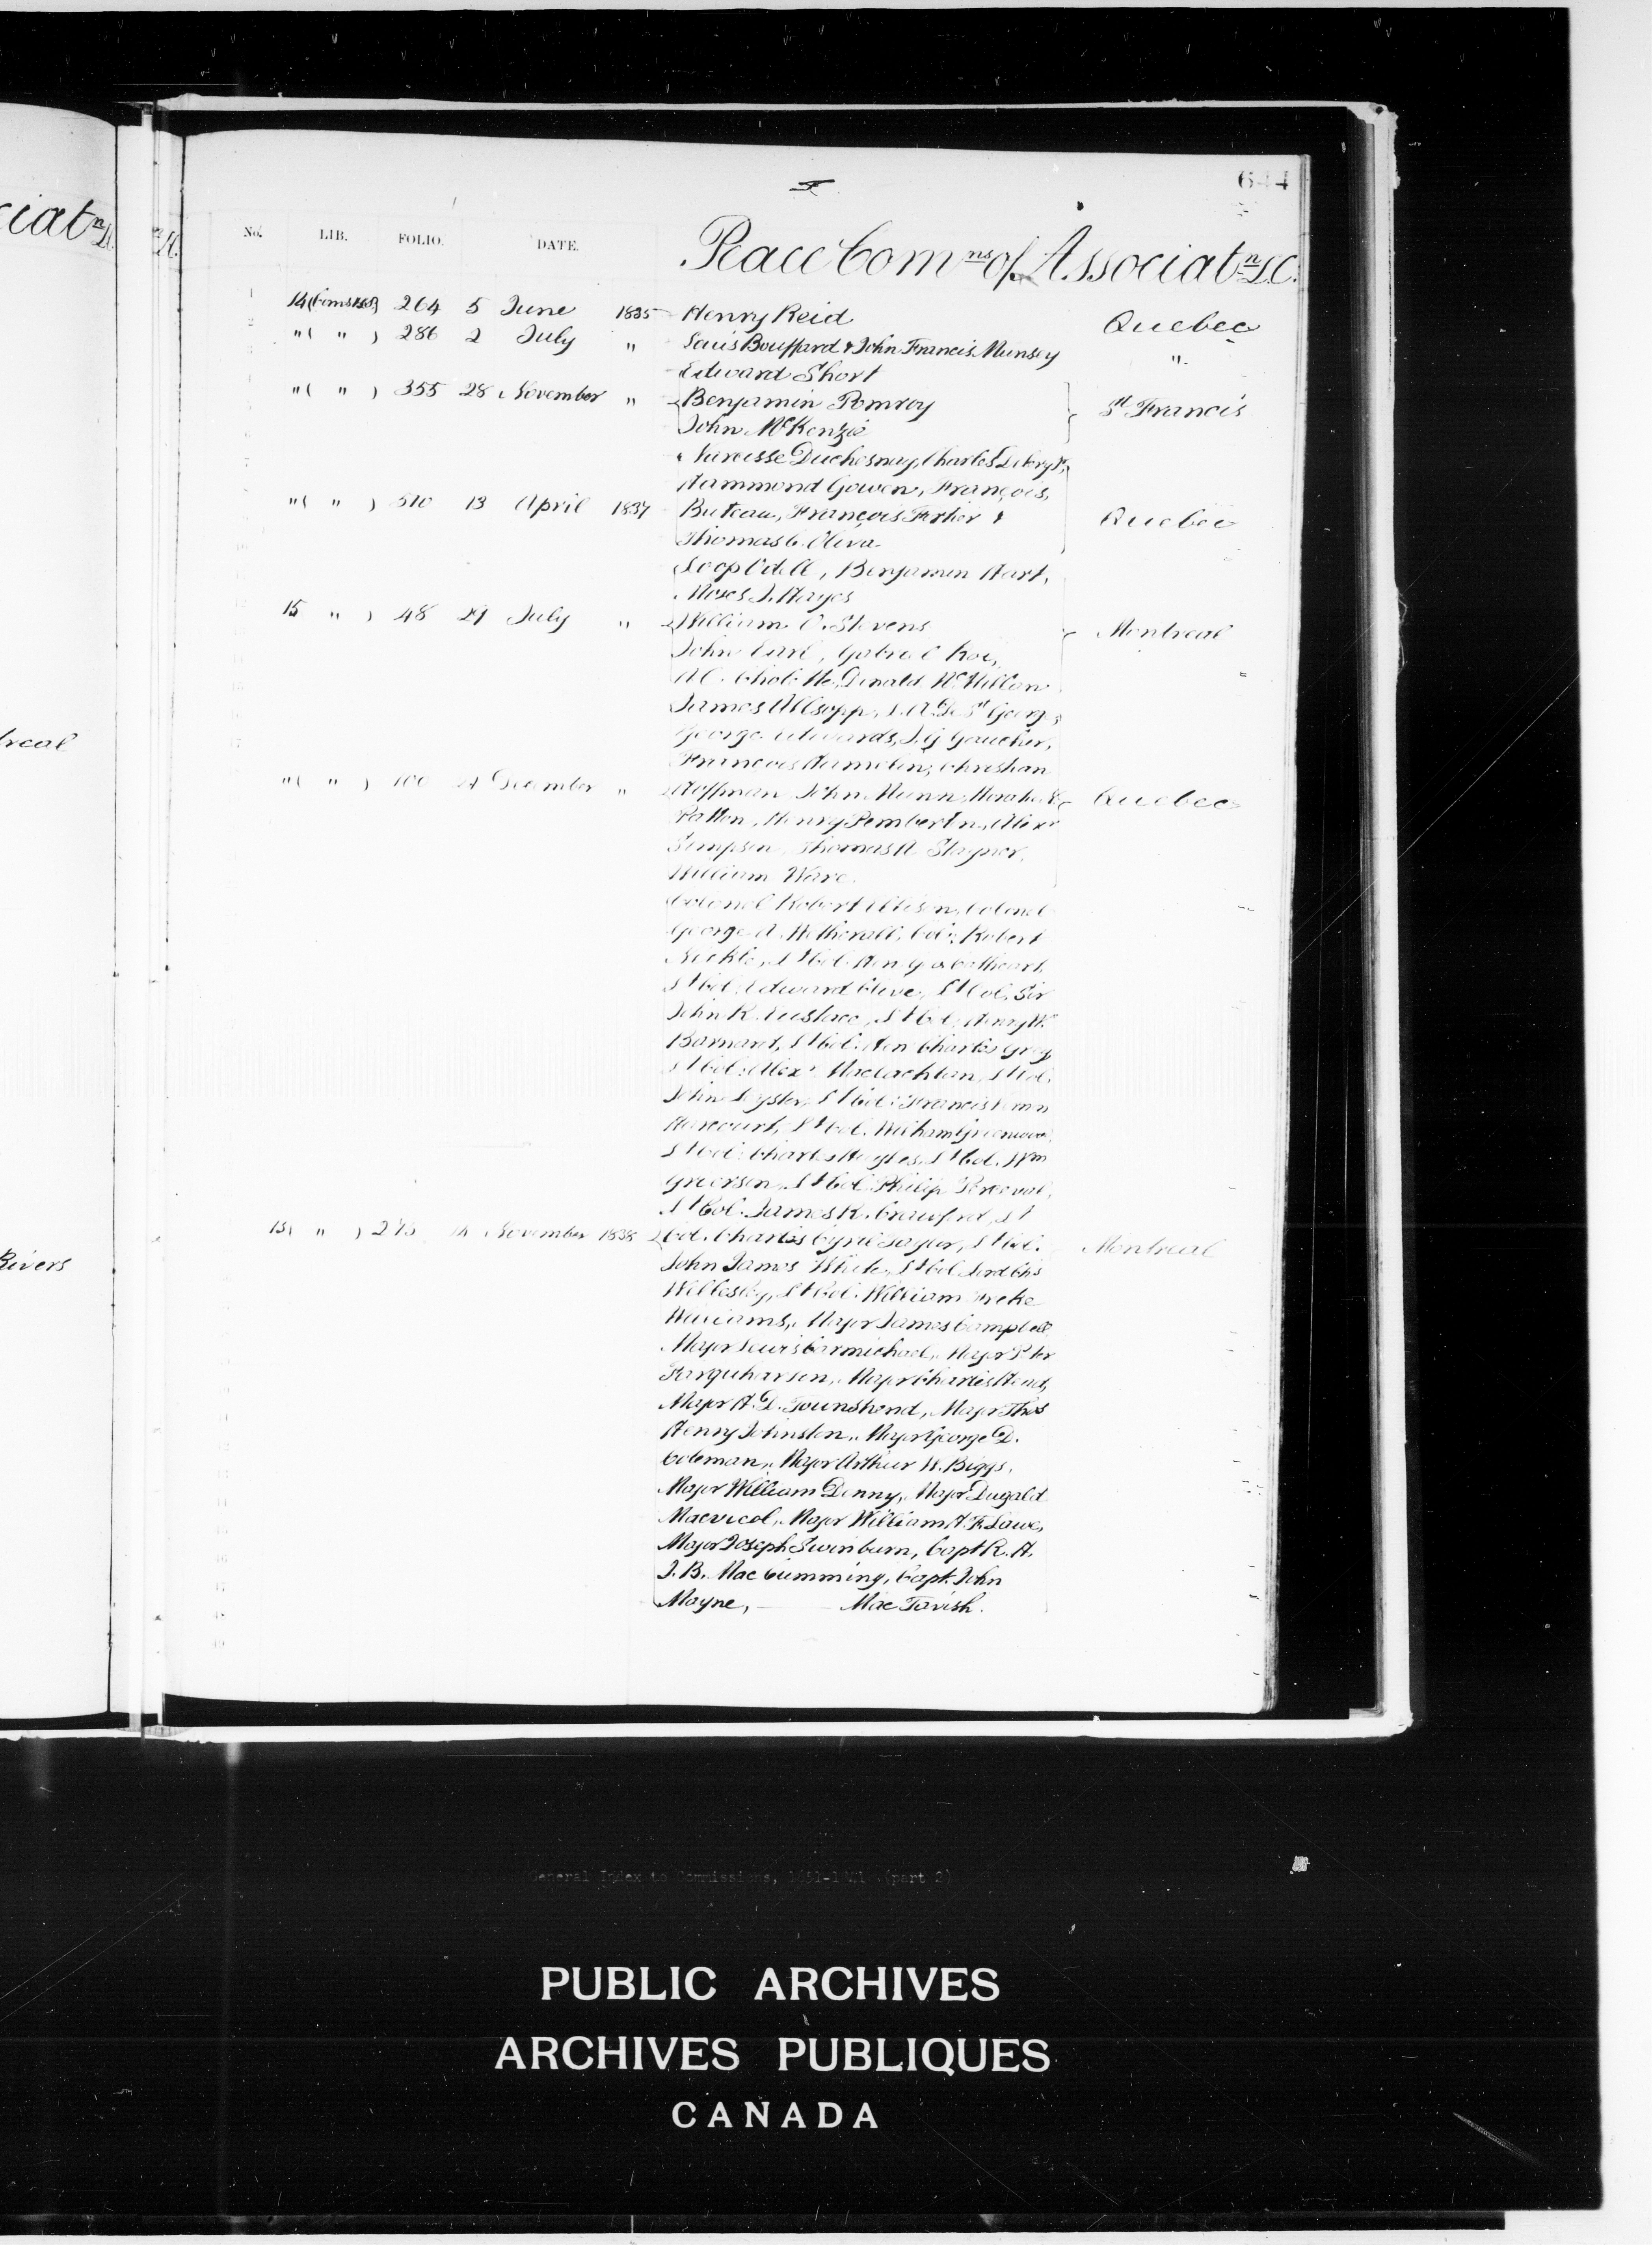 644
ciatn
No. LIB. FOLIO. DATE. Peace Comns of Associatn L.C.
14 (Coms 1835) 264 5 June 1835 Henry Reid Quebec
" ( " ) 286 2 July " Louis Bouffard & John Francis Munsey "
Edward Short
" ( " ) 355 28 November " Benjamin Pomroy St Francis
John McKenzie
Narcisse Duchesnay, Charles
Hammond Gowen, François,
" ( " ) 510 13 April 1837 Buteau, François & Quebec
Thomas C. Oliva
Loop Odell, Benjamin Hart,
Moses J. Hayes
15 " ) 48 29 July " William O. Stevens Montreal
John Earl, Gabriel Roi,
Donald McMillan
James Allsopp, De St George,
George Edwards, J. G. Gaucher,
François Hamelin, Christian
" ( " ) 100 December " Hoffman John Munn, Quebec
Patton, Henry Pemberton, Alexr
Simpson, Thomas A Stayner,
William Ware.
Colonel Robert Ellison, Colonel
George A. Wetherall, Col: Robert
Lt Col. Henry Cathcart,
Lt Col. Edward Clive, Lt Col. Sir
John R. Eustace, Lt Col. Henry Wm
Barnard, Lt Col. Hon Charles Grey
Lt Col: Alexr Maclachlan, Lt Col.
John Lt Col: Francis
Harcourt, Lt Col. William Greenwood,
Lt Col: Charles Lt Col. Wm
Grierson, Lt Col. Philip Perceval,
Lt Col. James R. Craufurd, Lt
15 ( " ) 275 November 1838 Col. Charles Cyril Taylor, Lt Col. Montreal
John James White, Lt Col Lord Chs
Wellesley, Lt Col. William Freke
Williams, Major James Campbell
Major Lewis Carmichael, Major Peter
Farquharson, Major Charles Head,
Major H. D. Townshend, Major Thos
Henry Johnston, Major George D.
Coleman, Major Arthur W. Biggs,
Major William Denny, Major Dugald
Macnicol, Major William H. F. Lawe,
Major Joseph Swinburn, Capt R. H.
J. B. Mac Cumming, Capt. John
Mayne, Mac Tavish.
treal
Rivers
General Index to Commissions, 1651-1841 (part 2)
PUBLIC ARCHIVES
ARCHIVES PUBLIQUES
CANADA